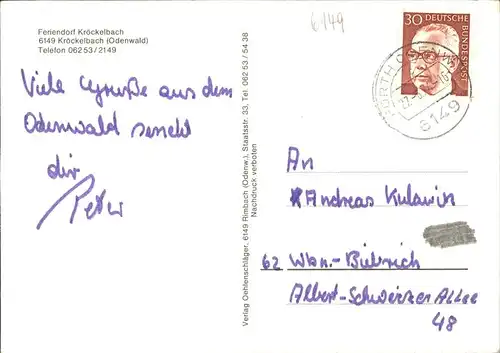 Feriendorf Kröckelbach
6149 Kröckelbach (Odenwald)
Telefon 06253/2149
6149
30
DEUTSCHE BUNDESPOST
6149
Viele Grüße aus dem
Odenwald sendet
dir
Peter
Verlag Oehlenschläger, 6149 Rimbach (Odenw.), Staatsstr. 33, Tel. 06253/5438
Nachdruck verboten
An
Andreas Kulawik
62 Wbn.-Biebrich
Albert-Schweizer Allee
48